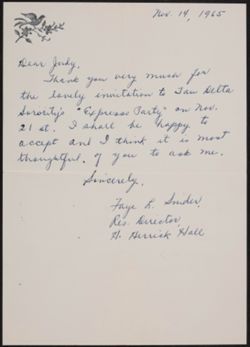 Nov. 14, 1965
Dear Judy,
Thank you very much for
the lovely invitation to Tau Delta
Sorority's "Express Party" on Nov.
21st. I shall be happy to
accept and I think it is most
thoughtful of you to ask me.
Sincerely,
Faye L. Snider,
Res. Director
H. Herrick Hall